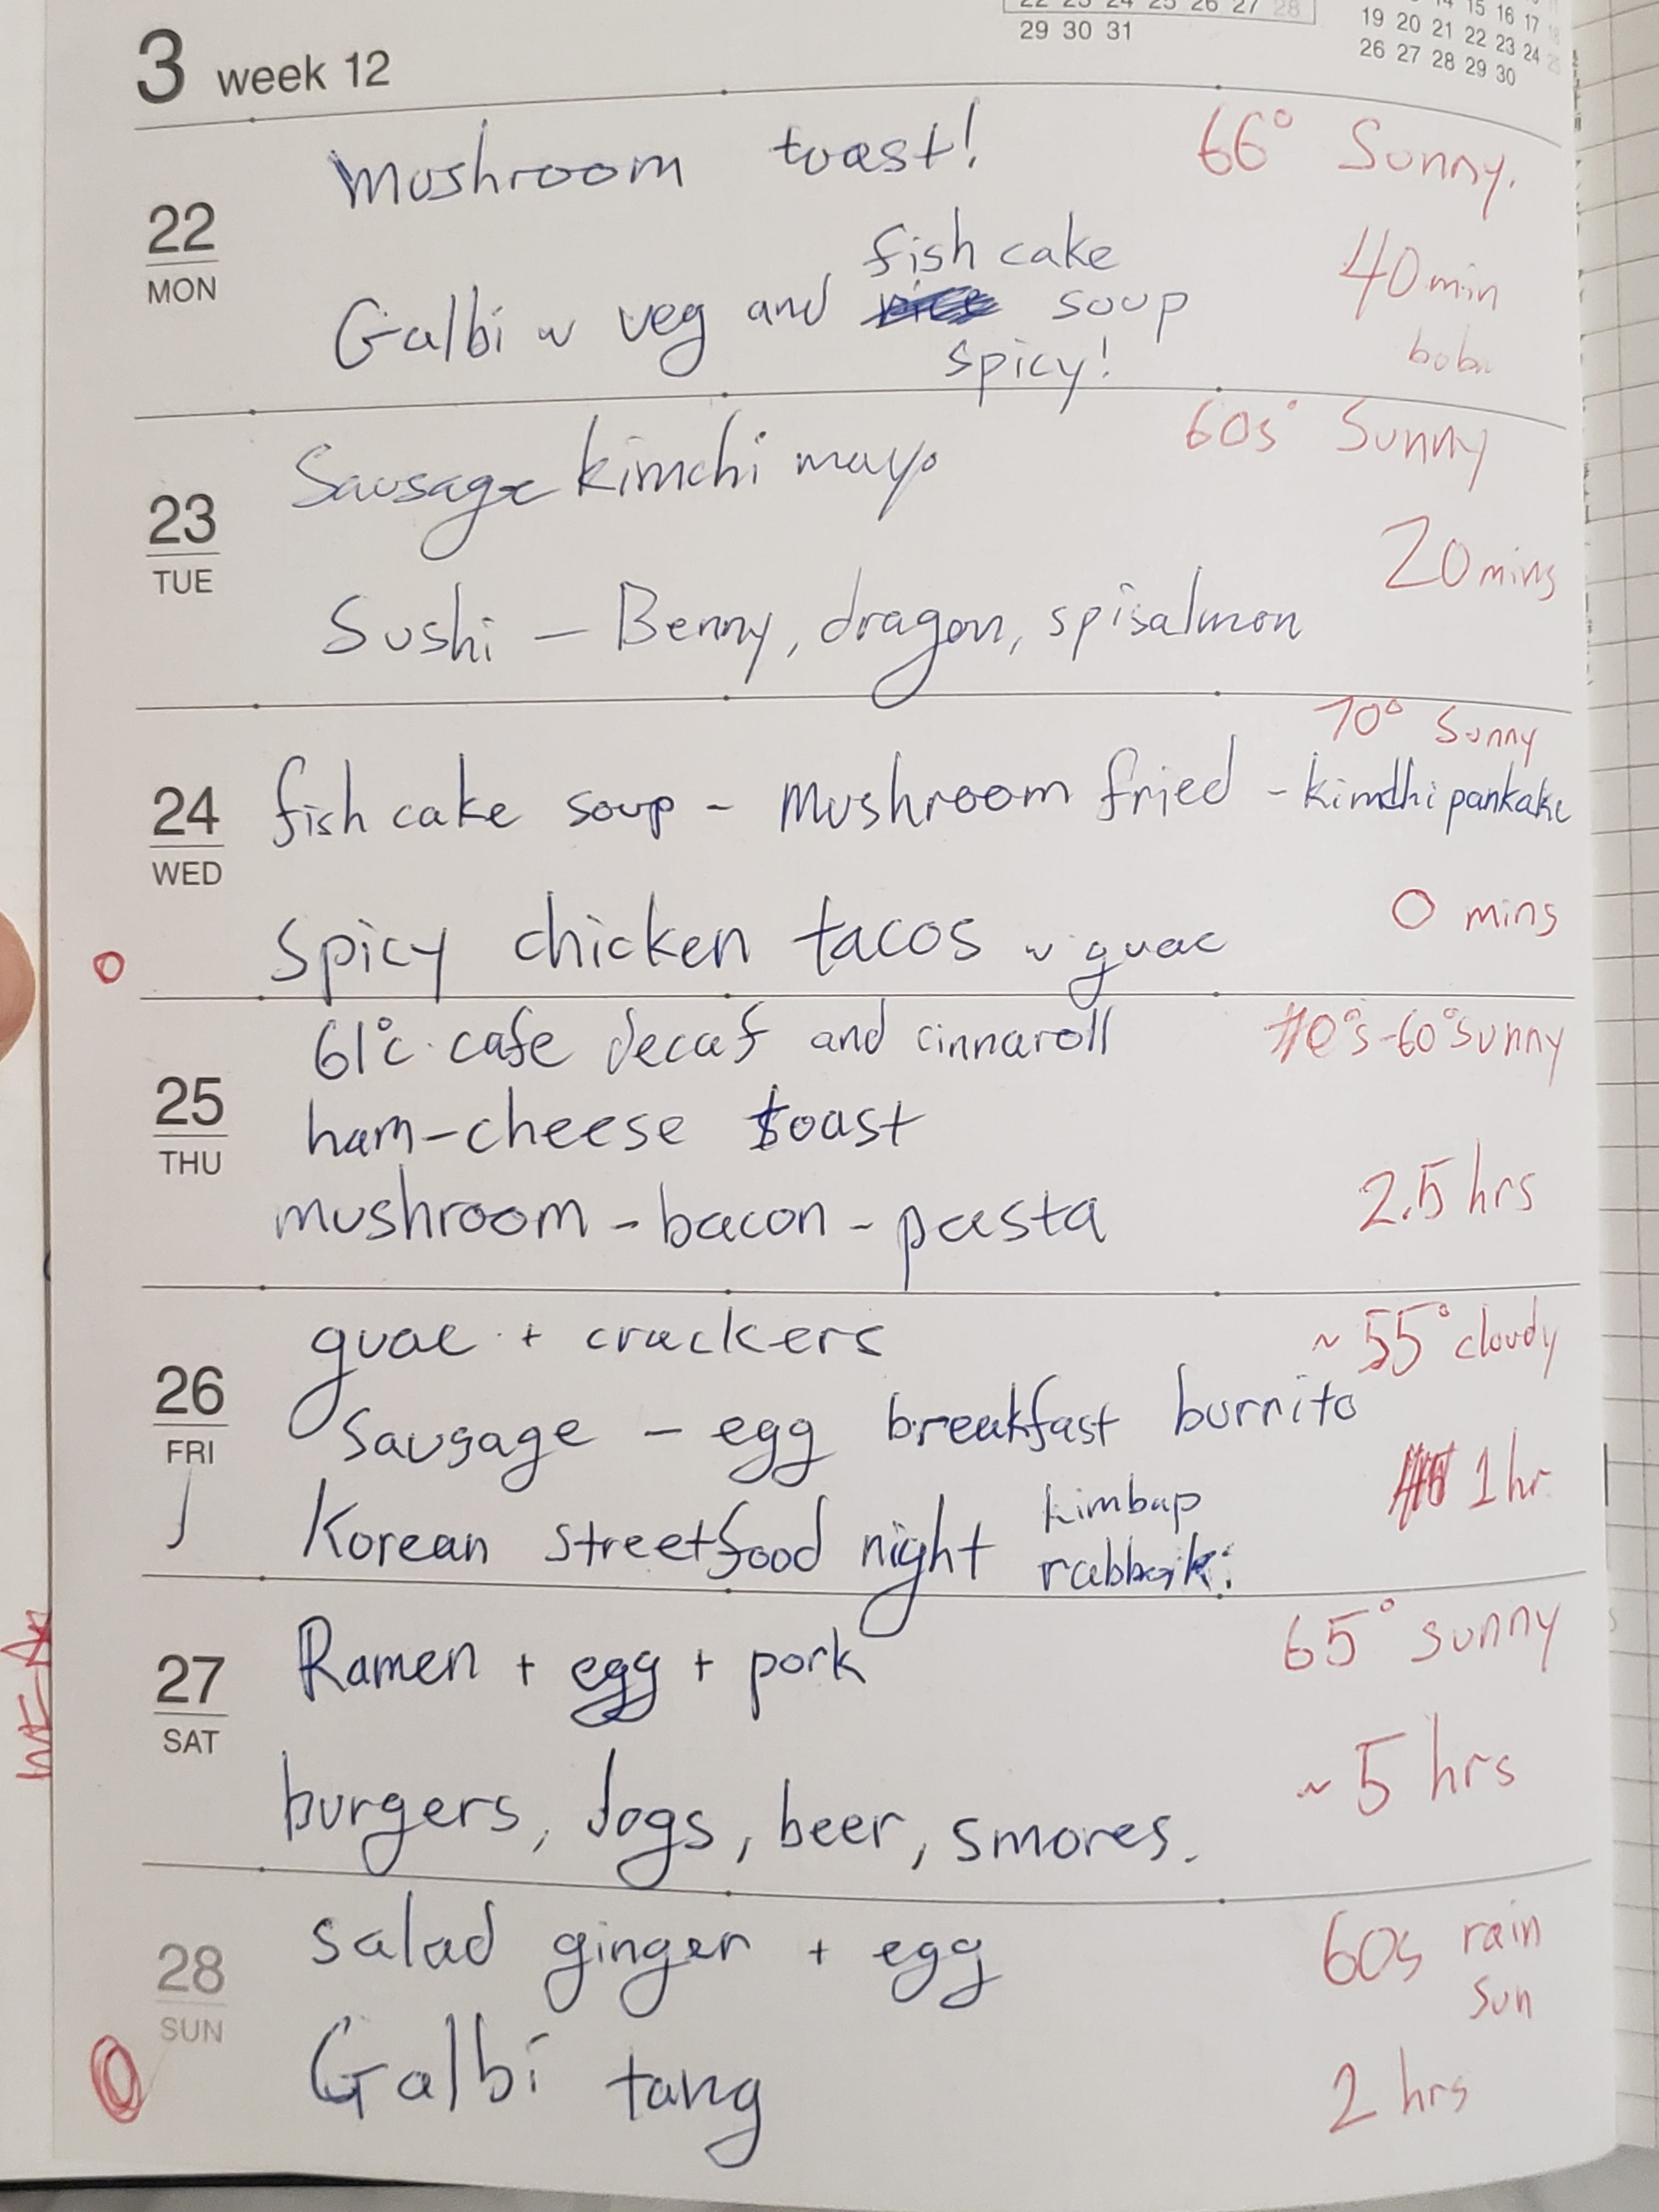 22 23 24 25 26 27 28
29 30 31
14 15 16 17 18
19 20 21 22 23 24 25
26 27 28 29 30
3 week 12
22
MON
Mushroom toast!
66° Sunny.
fish cake
Galbi w veg and soup
spicy!
40 min
boba
23
TUE
Sausage kimchi mayo
60s° Sunny
20 mins
Sushi — Benny, dragon, spisalmon
24
WED
70° Sunny
fish cake soup - Mushroom fried - kimchi pankake
0 mins
Spicy chicken tacos w guac
O
25
THU
61°c cafe decaf and cinnaroll
70°s-60° sunny
ham-cheese toast
mushroom - bacon - pasta
2.5 hrs
26
FRI
guac + crackers
~ 55° cloudy
Sausage - egg breakfast burrito
1 hr
Korean streetfood night kimbap
27
SAT
Ramen + egg + pork
65° sunny
~ 5 hrs
burgers, dogs, beer, smores.
28
SUN
salad ginger + egg
60s rain
sun
Galbi tang
2 hrs
O